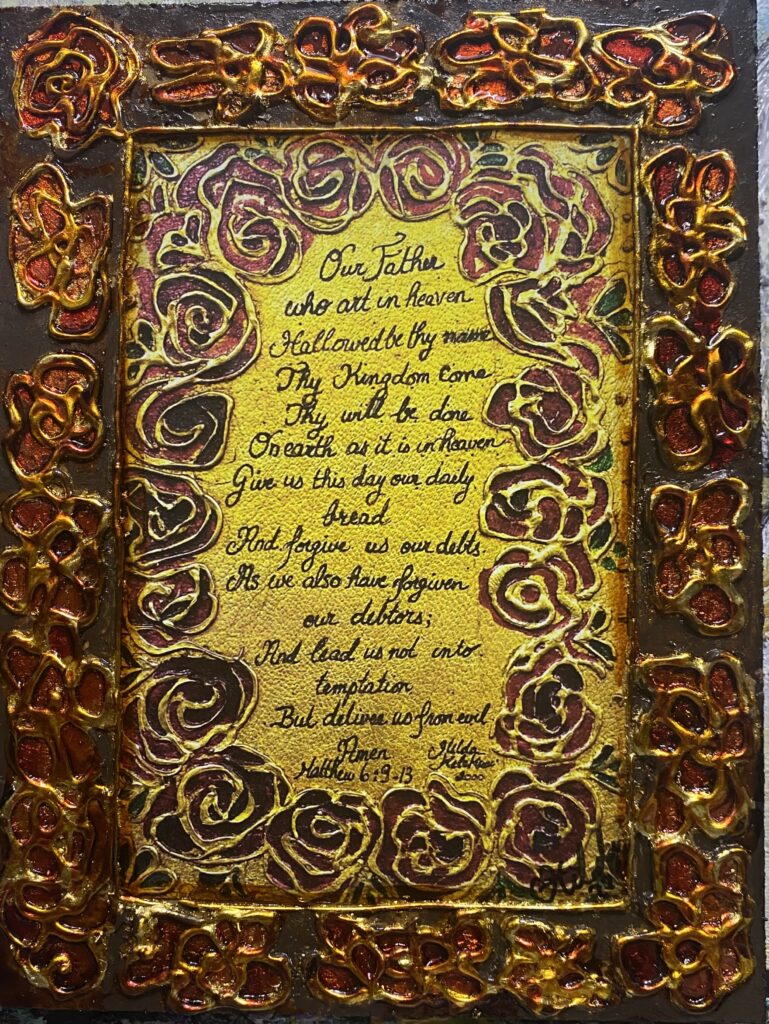 Our Father
who art in heaven
Hallowed be thy name
Thy Kingdom Come
Thy will be done
On earth as it is in heaven
Give us this day our daily
bread
And forgive us our debts
As we also have forgiven
our debtors;
And lead us not into
temptation
But deliver us from evil
Amen
Hilda
Matthew 6:9-13
2000
Hilda